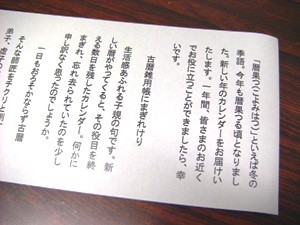 「暦果つ(こよみはつ)」といえば冬の
季語。今年も暦果つる頃となりまし
た。新しい年のカレンダーをお届けい
たします。一年間、皆さまのお近く
でお役に立つことができましたら、幸
いです。
古暦雑用帳にまぎれけり
生活感あふれる子規の句です。新
しい暦がやってくると、その役目を終
える数日を残したカレンダー。何かに
まぎれ、忘れ去られていたのを少し
申し訳なく思ったのでしょうか。
一日もおろそかならず古暦
そんな師匠をチクリと刺
弟子、虚子の